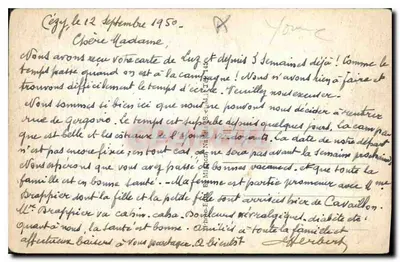 Cézy, le 12 Septembre 1950.
Chère Madame,
Nous avons reçu votre carte de Luz st depuis 3 semaines déjà ! Comme le
temps passe quand on est à la campagne ! Nous n'avons rien à faire et
trouvons difficilement le temps d'écrire. Veuillez nous excuser.
Nous sommes si bien ici que nous ne pouvons nous décider à rentrer
rue de Gergovie. le temps est superbe depuis quelques jours. La campagne
est belle et les côteaux La date de notre départ
n'est pas encore fixée; en tout cas, ce ne sera pas avant la semaine prochaine
Nous espérons que vous avez passé de bonnes vacances. et que toute la
famille est en bonne santé. Ma femme est partie promener avec Mme
Brappier dont la fille et la petite fille sont arrivées hier de Cavaillon.
Mr Brappier va cahin. caha. Douleurs névralgiques. diabète etc.
quant à nous, la santé est bonne. Amitiés à toute la famille et
affectueux baisers à vous A bientôt
Herbert